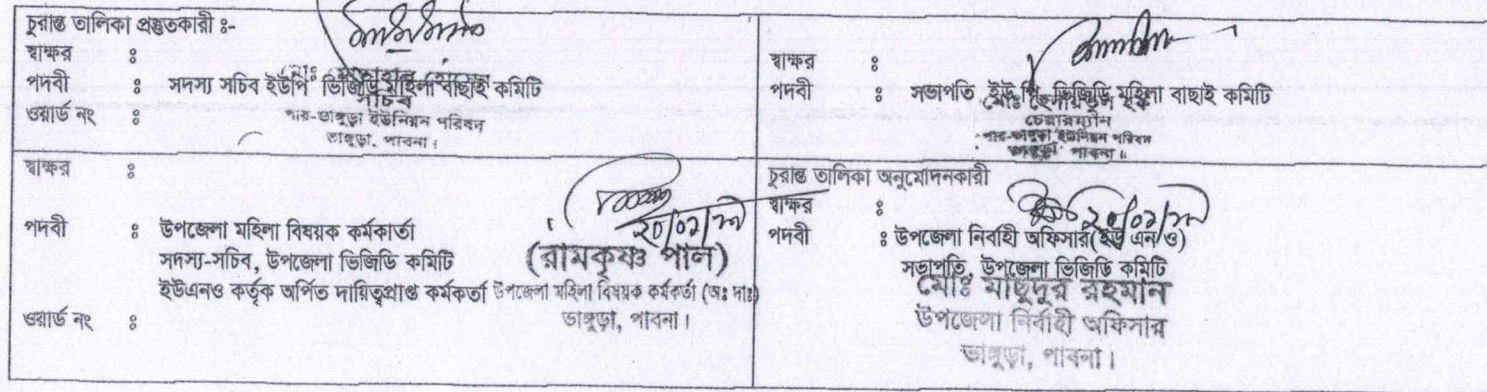 চুরান্ত তালিকা প্রস্তুতকারী ঃ-
স্বাক্ষর ঃ
পদবী ঃ সদস্য সচিব ইউপি ভিজিডি মহিলা বাছাই কমিটি
সচিব
ওয়ার্ড নং ঃ
পার-ভাঙ্গুড়া ইউনিয়ন পরিষদ
ভাঙ্গুড়া, পাবনা।
স্বাক্ষর ঃ
পদবী ঃ সভাপতি ইউ পি ভিজিডি মহিলা বাছাই কমিটি
মোঃ
চেয়ারম্যান
পার-ভাঙ্গুড়া ইউনিয়ন পরিষদ
ভাঙ্গুড়া পাবনা।
স্বাক্ষর ঃ
পদবী ঃ উপজেলা মহিলা বিষয়ক কর্মকার্তা
সদস্য-সচিব, উপজেলা ভিজিডি কমিটি
ইউএনও কর্তৃক অর্পিত দায়িত্বপ্রাপ্ত কর্মকর্তা
ওয়ার্ড নং ঃ
(রামকৃষ্ণ পাল)
উপজেলা মহিলা বিষয়ক কর্মকর্তা (অঃ দাঃ)
ভাঙ্গুড়া, পাবনা।
চুরান্ত তালিকা অনুমোদনকারী
স্বাক্ষর ঃ
পদবী ঃ উপজেলা নির্বাহী অফিসার(ইউ এন ও)
সভাপতি, উপজেলা ভিজিডি কমিটি
মোঃ মাছুদুর রহমান
উপজেলা নির্বাহী অফিসার
ভাঙ্গুড়া, পাবনা।